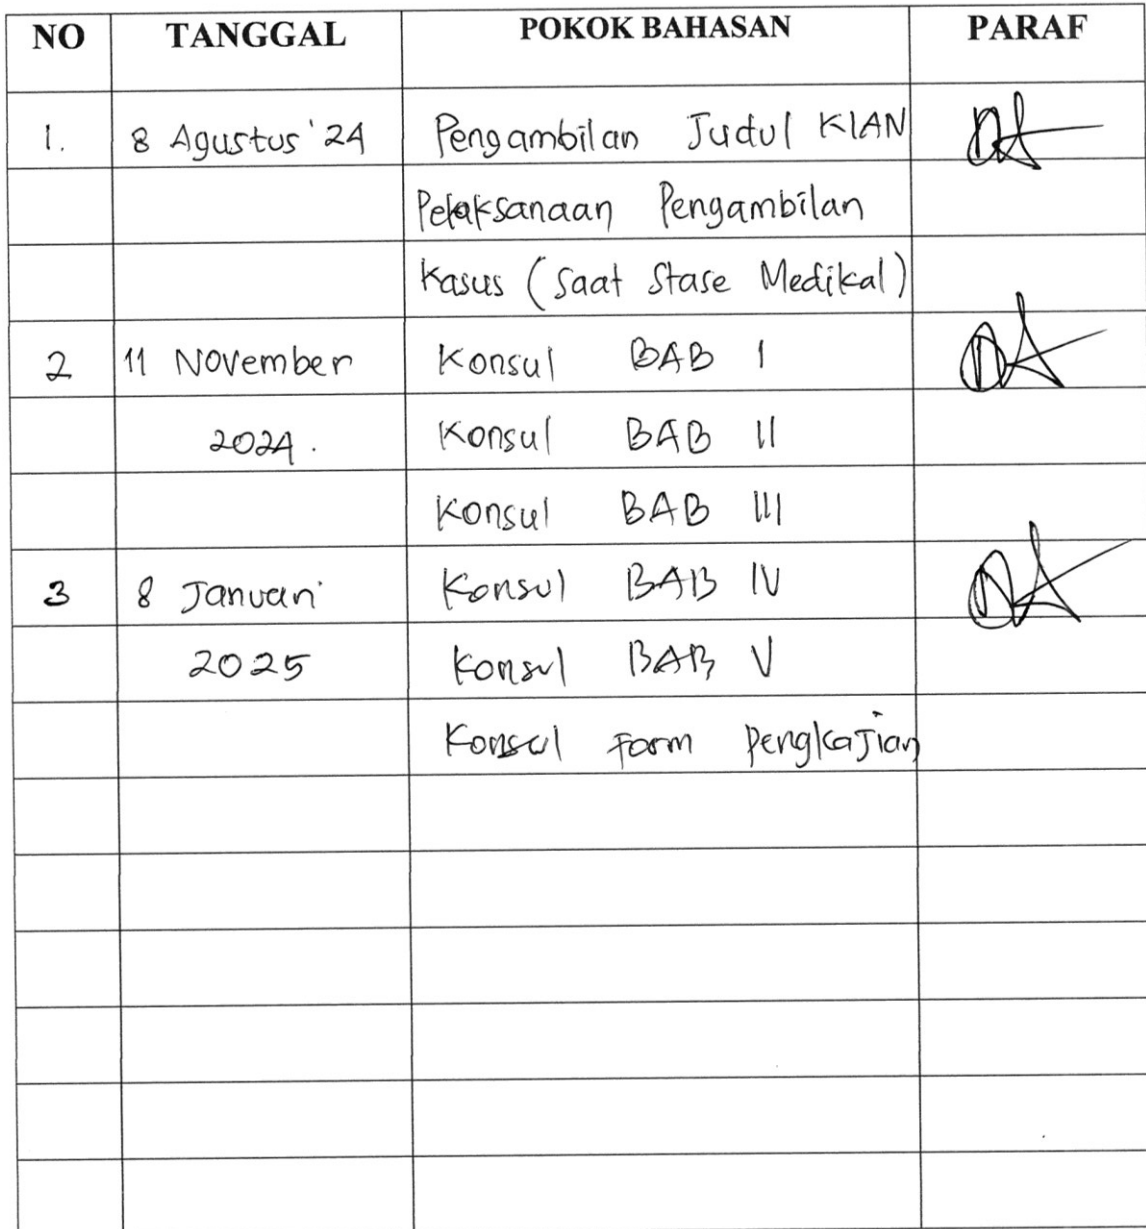 NO TANGGAL POKOK BAHASAN PARAF
1. 8 Agustus '24 Pengambilan Judul KIAN
Pelaksanaan Pengambilan
Kasus (Saat Stase Medikal)
2 11 November Konsul BAB I
2024. Konsul BAB II
Konsul BAB III
3 8 Januari Konsul BAB IV
2025 Konsul BAB V
Konsul Form Pengkajian